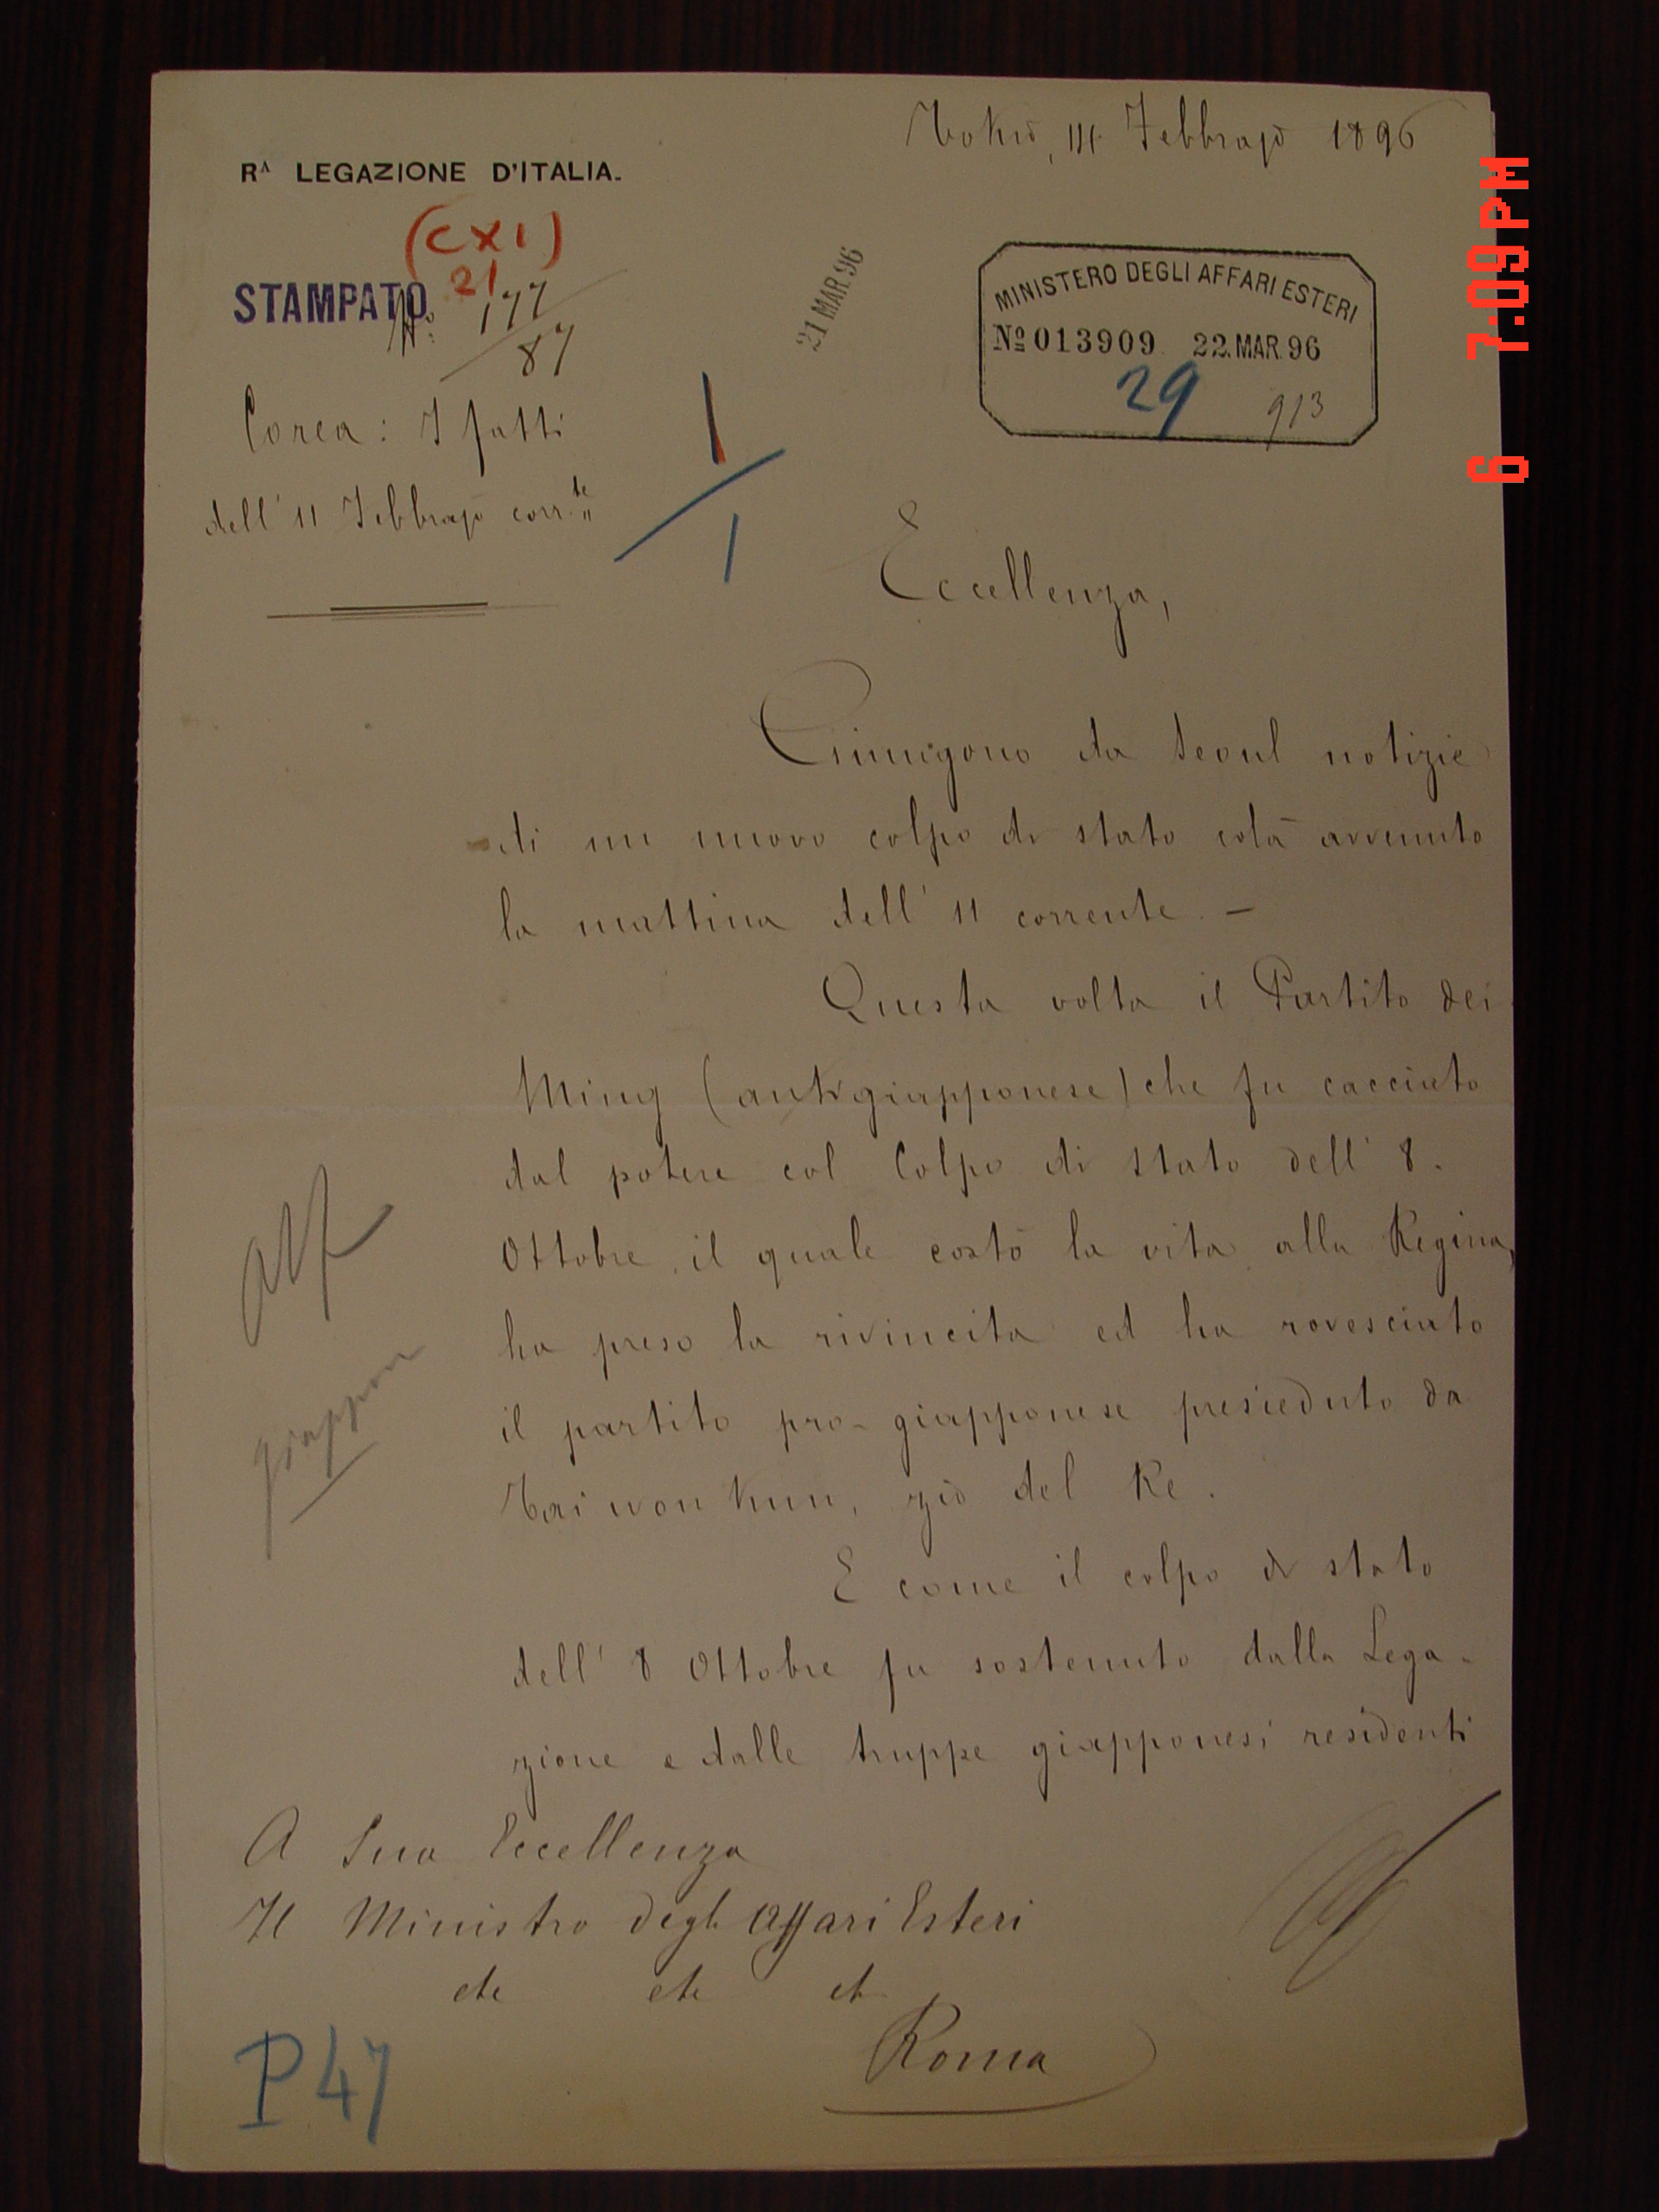 Tokio, 14 Febbrajo 1896
Rᴬ LEGAZIONE D'ITALIA.
(CXI)
21
STAMPATO
N.° 177
87
21 MAR. 96
MINISTERO DEGLI AFFARI ESTERI
Nº 013909 22. MAR. 96
29 913
Corea: I fatti
dell' 11 Febbrajo corr.te
1
1
Eccellenza,
Giungono da Seoul notizie
di un nuovo colpo di stato colà avvenuto
la mattina dell' 11 corrente. —
Questa volta il Partito dei
Ming (antigiapponese) che fu cacciato
dal potere col Colpo di stato dell' 8.
Ottobre, il quale costò la vita alla Regina,
ha preso la rivincita ed ha rovesciato
il partito pro-giapponese presieduto da
Tai won Kun, zio del Re.
E come il colpo di stato
dell' 8 Ottobre fu sostenuto dalla Lega-
zione e dalle truppe giapponesi residenti
giappone
A Sua Eccellenza
Il Ministro degli Affari Esteri
etc etc etc
Roma
P 47
6 7:09PM